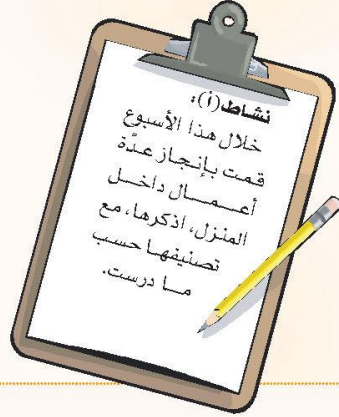 نشاط (أ):
خلال هذا الأسبوع
قمت بإنجاز عدَّة
أعـــمـــال داخـــل
المنزل، اذكرها، مع
تصنيفهـا حسـب
مـــا درست.